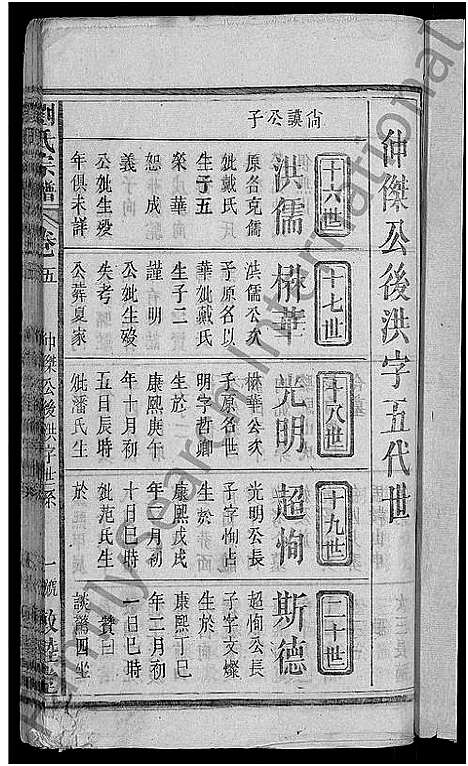 仲傑公後洪字五代世
尙謨公子
十六世
洪儒
原名克儒
妣戴氏
生子五
榮 華
恕 成
義
公妣生歿
年俱未詳
十七世
楙華
洪儒公次
子原名以
華妣戴氏
生子二
謹 明
公妣生歿
失考
公葬夏家
十八世
光明
楙華公次
子原名世
明字哲卿
生於
康熙庚午
年十月初
五日辰時
妣潘氏生
十九世
超恂
光明公長
子字恂占
生於
康熙戊戌
年二月初
十日巳時
妣范氏生
於
二十世
斯德
超恂公長
子字文燦
生於
康熙丁巳
年二月初
一日巳時
贊曰
談驚四坐
劉氏宗譜
卷五
仲傑公後洪字世系
一號
敦睦堂
FamilySearch International